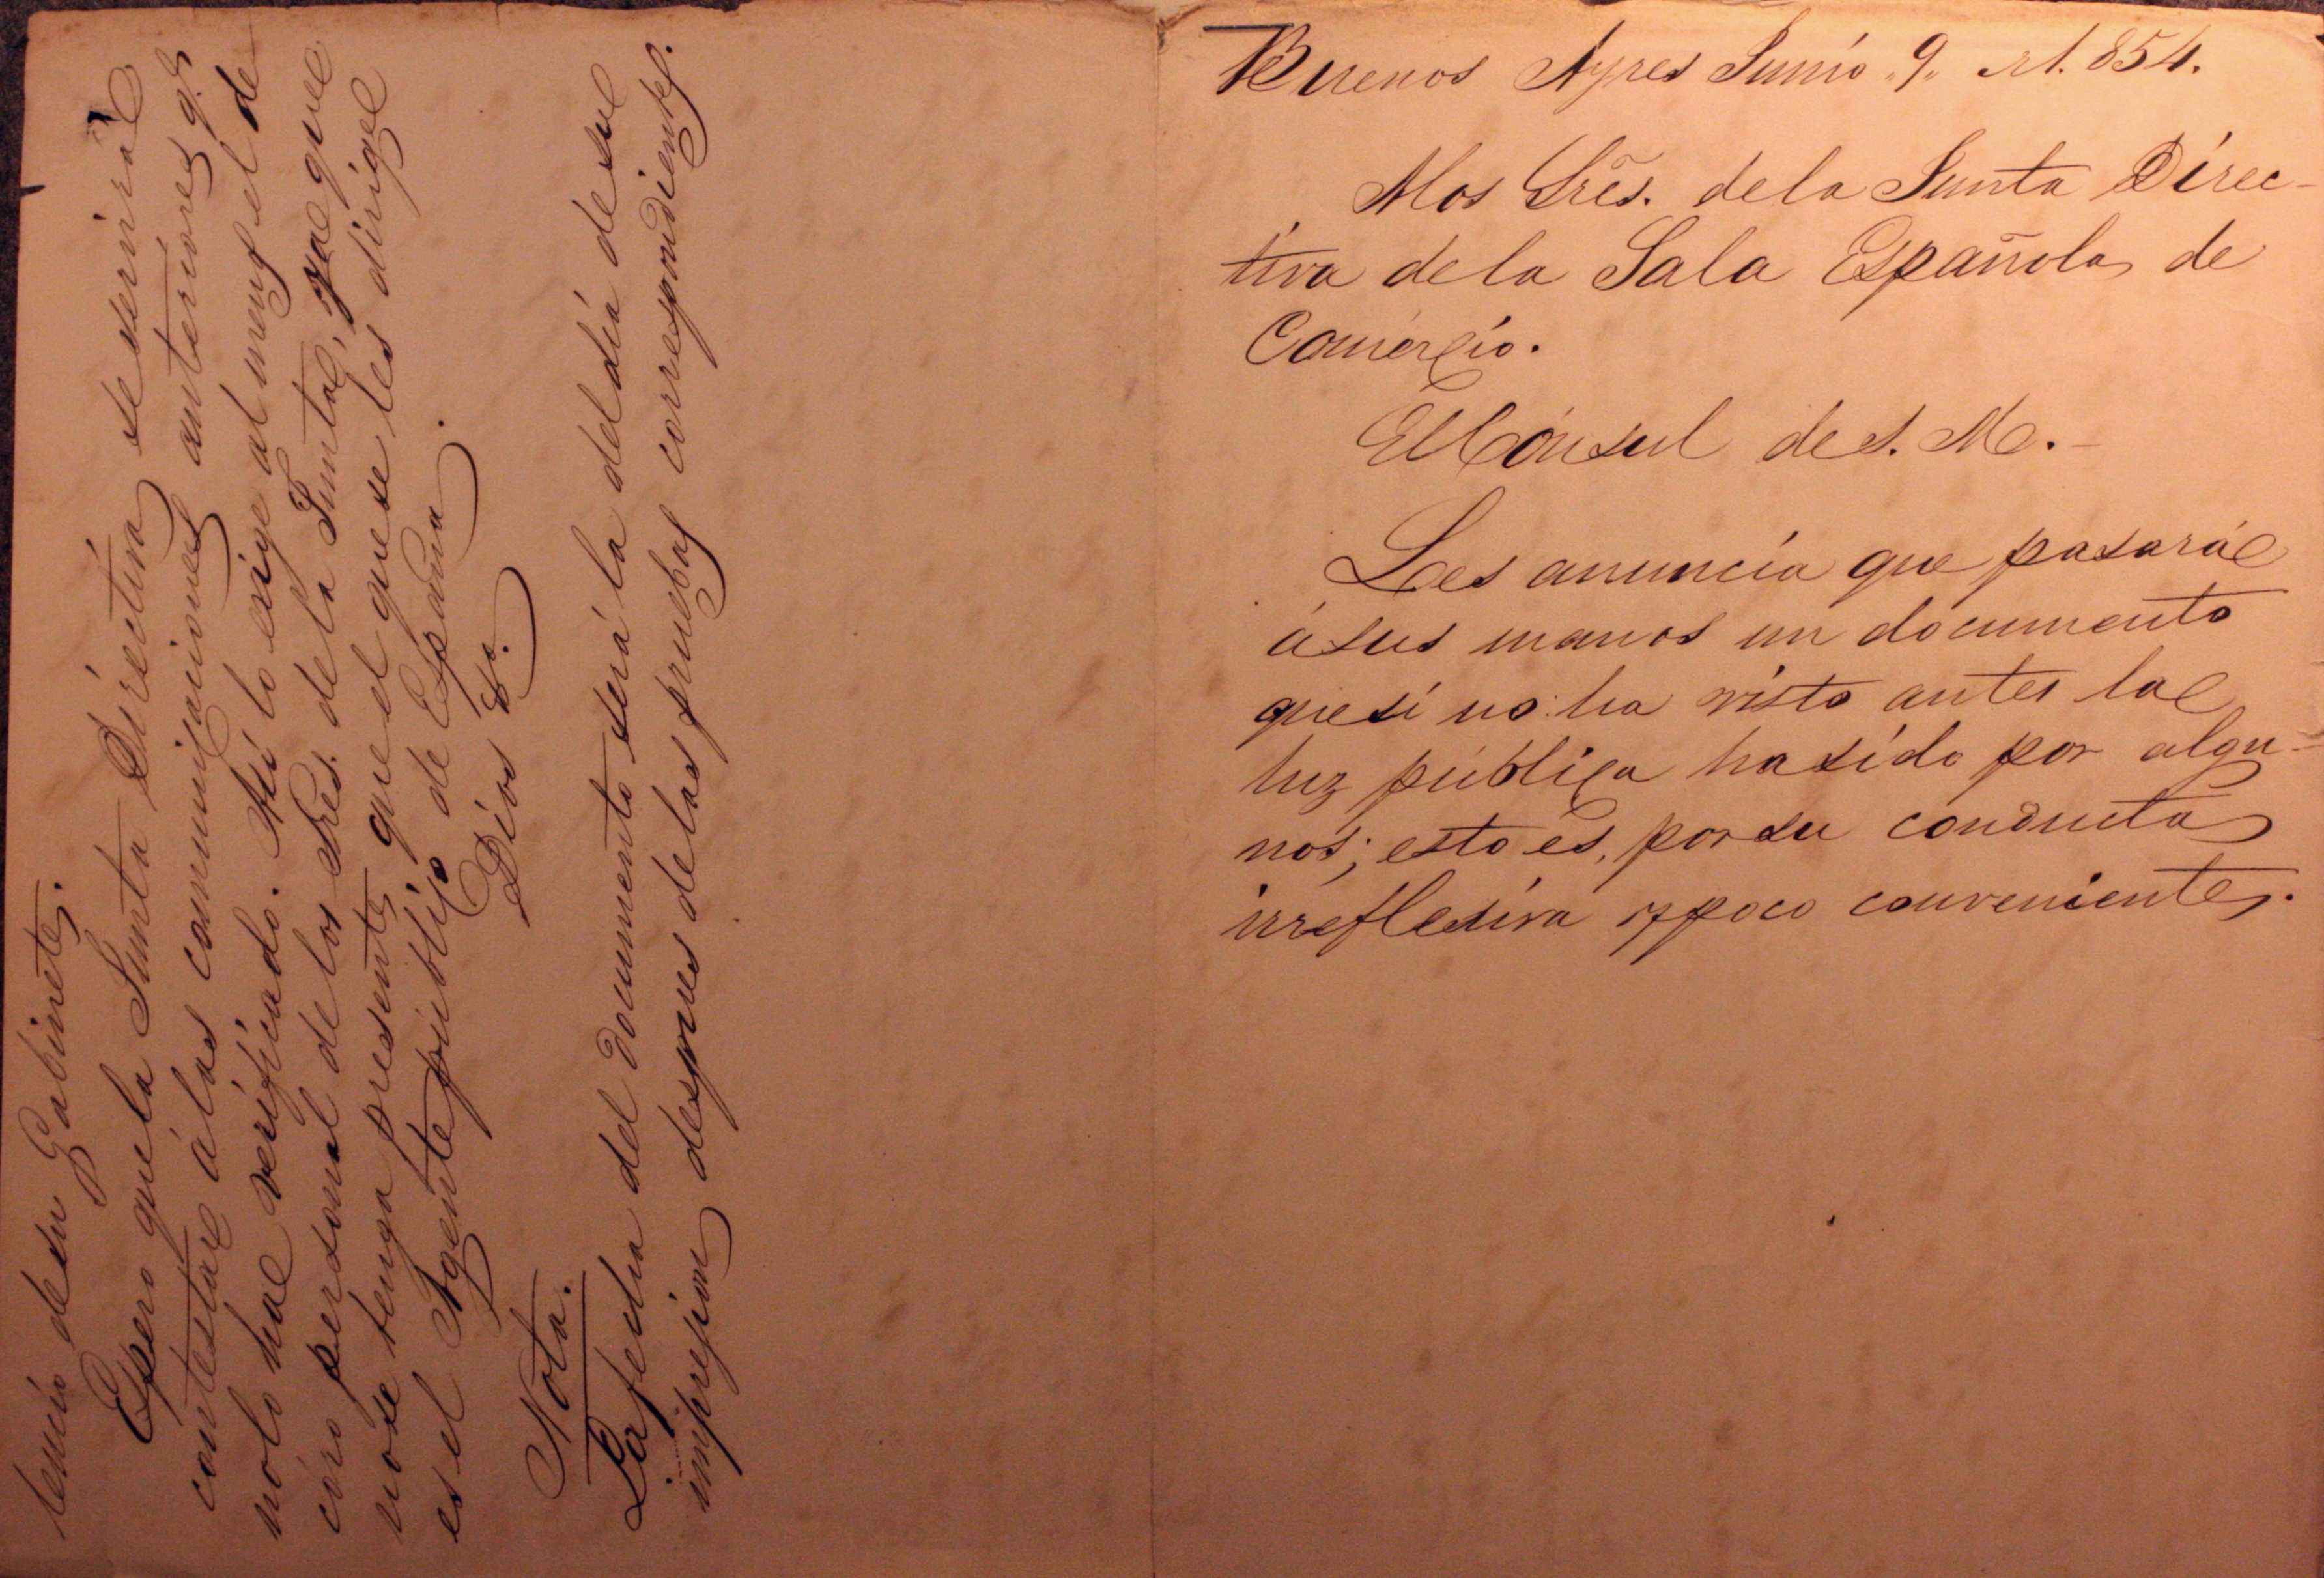 Buenos Ayres Junio "9" de 1.854.
Alos Sres. dela Junta Direc-
tiva dela Sala Española de
Comercio.
El Cónsul de S. M.
Les anuncia que pasará
ásus manos un documento
quesi no ha visto antes la
luz pública hasido por algu-
nos; esto es, porsu conducta
irreflesiva y poco conveniente.
lencio desu Gabinete.
Espero quela Junta Directiva se servirá
contestar á las comunicaciones anteriores q.e
nolo ha verificado. Así lo exige al menos el de
coro personal de los Sres. dela Junta, ya que
nose tenga presente que el quese les dirige
es el Agente público de España.
Dios &a.
Nota.
Lafecha del documento será la deldía desu
impresion despues delas pruebas correspondientes.